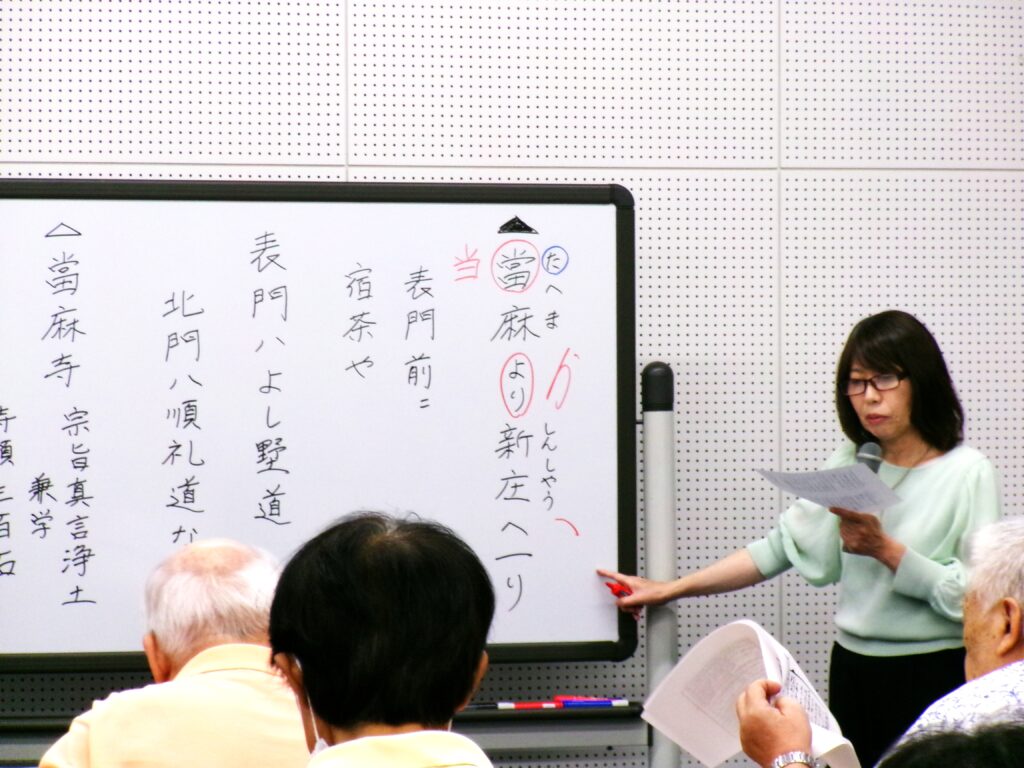 ▲當麻より新庄へ一り
たへま
か
しんしやう
へ
当
表門前ニ
宿茶や
表門ハよし墅道
北門ハ順礼道な
△當麻寺
宗旨真言浄土
兼学
寺領三百石